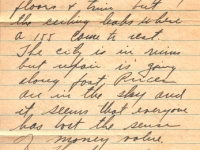 floors & trim but
the ceiling leaks where
a 155 came to rest.
The city is in ruins
but repair is going
along fast. Prices
are in the sky and
it seems that everyone
has lost the sense
of money value.